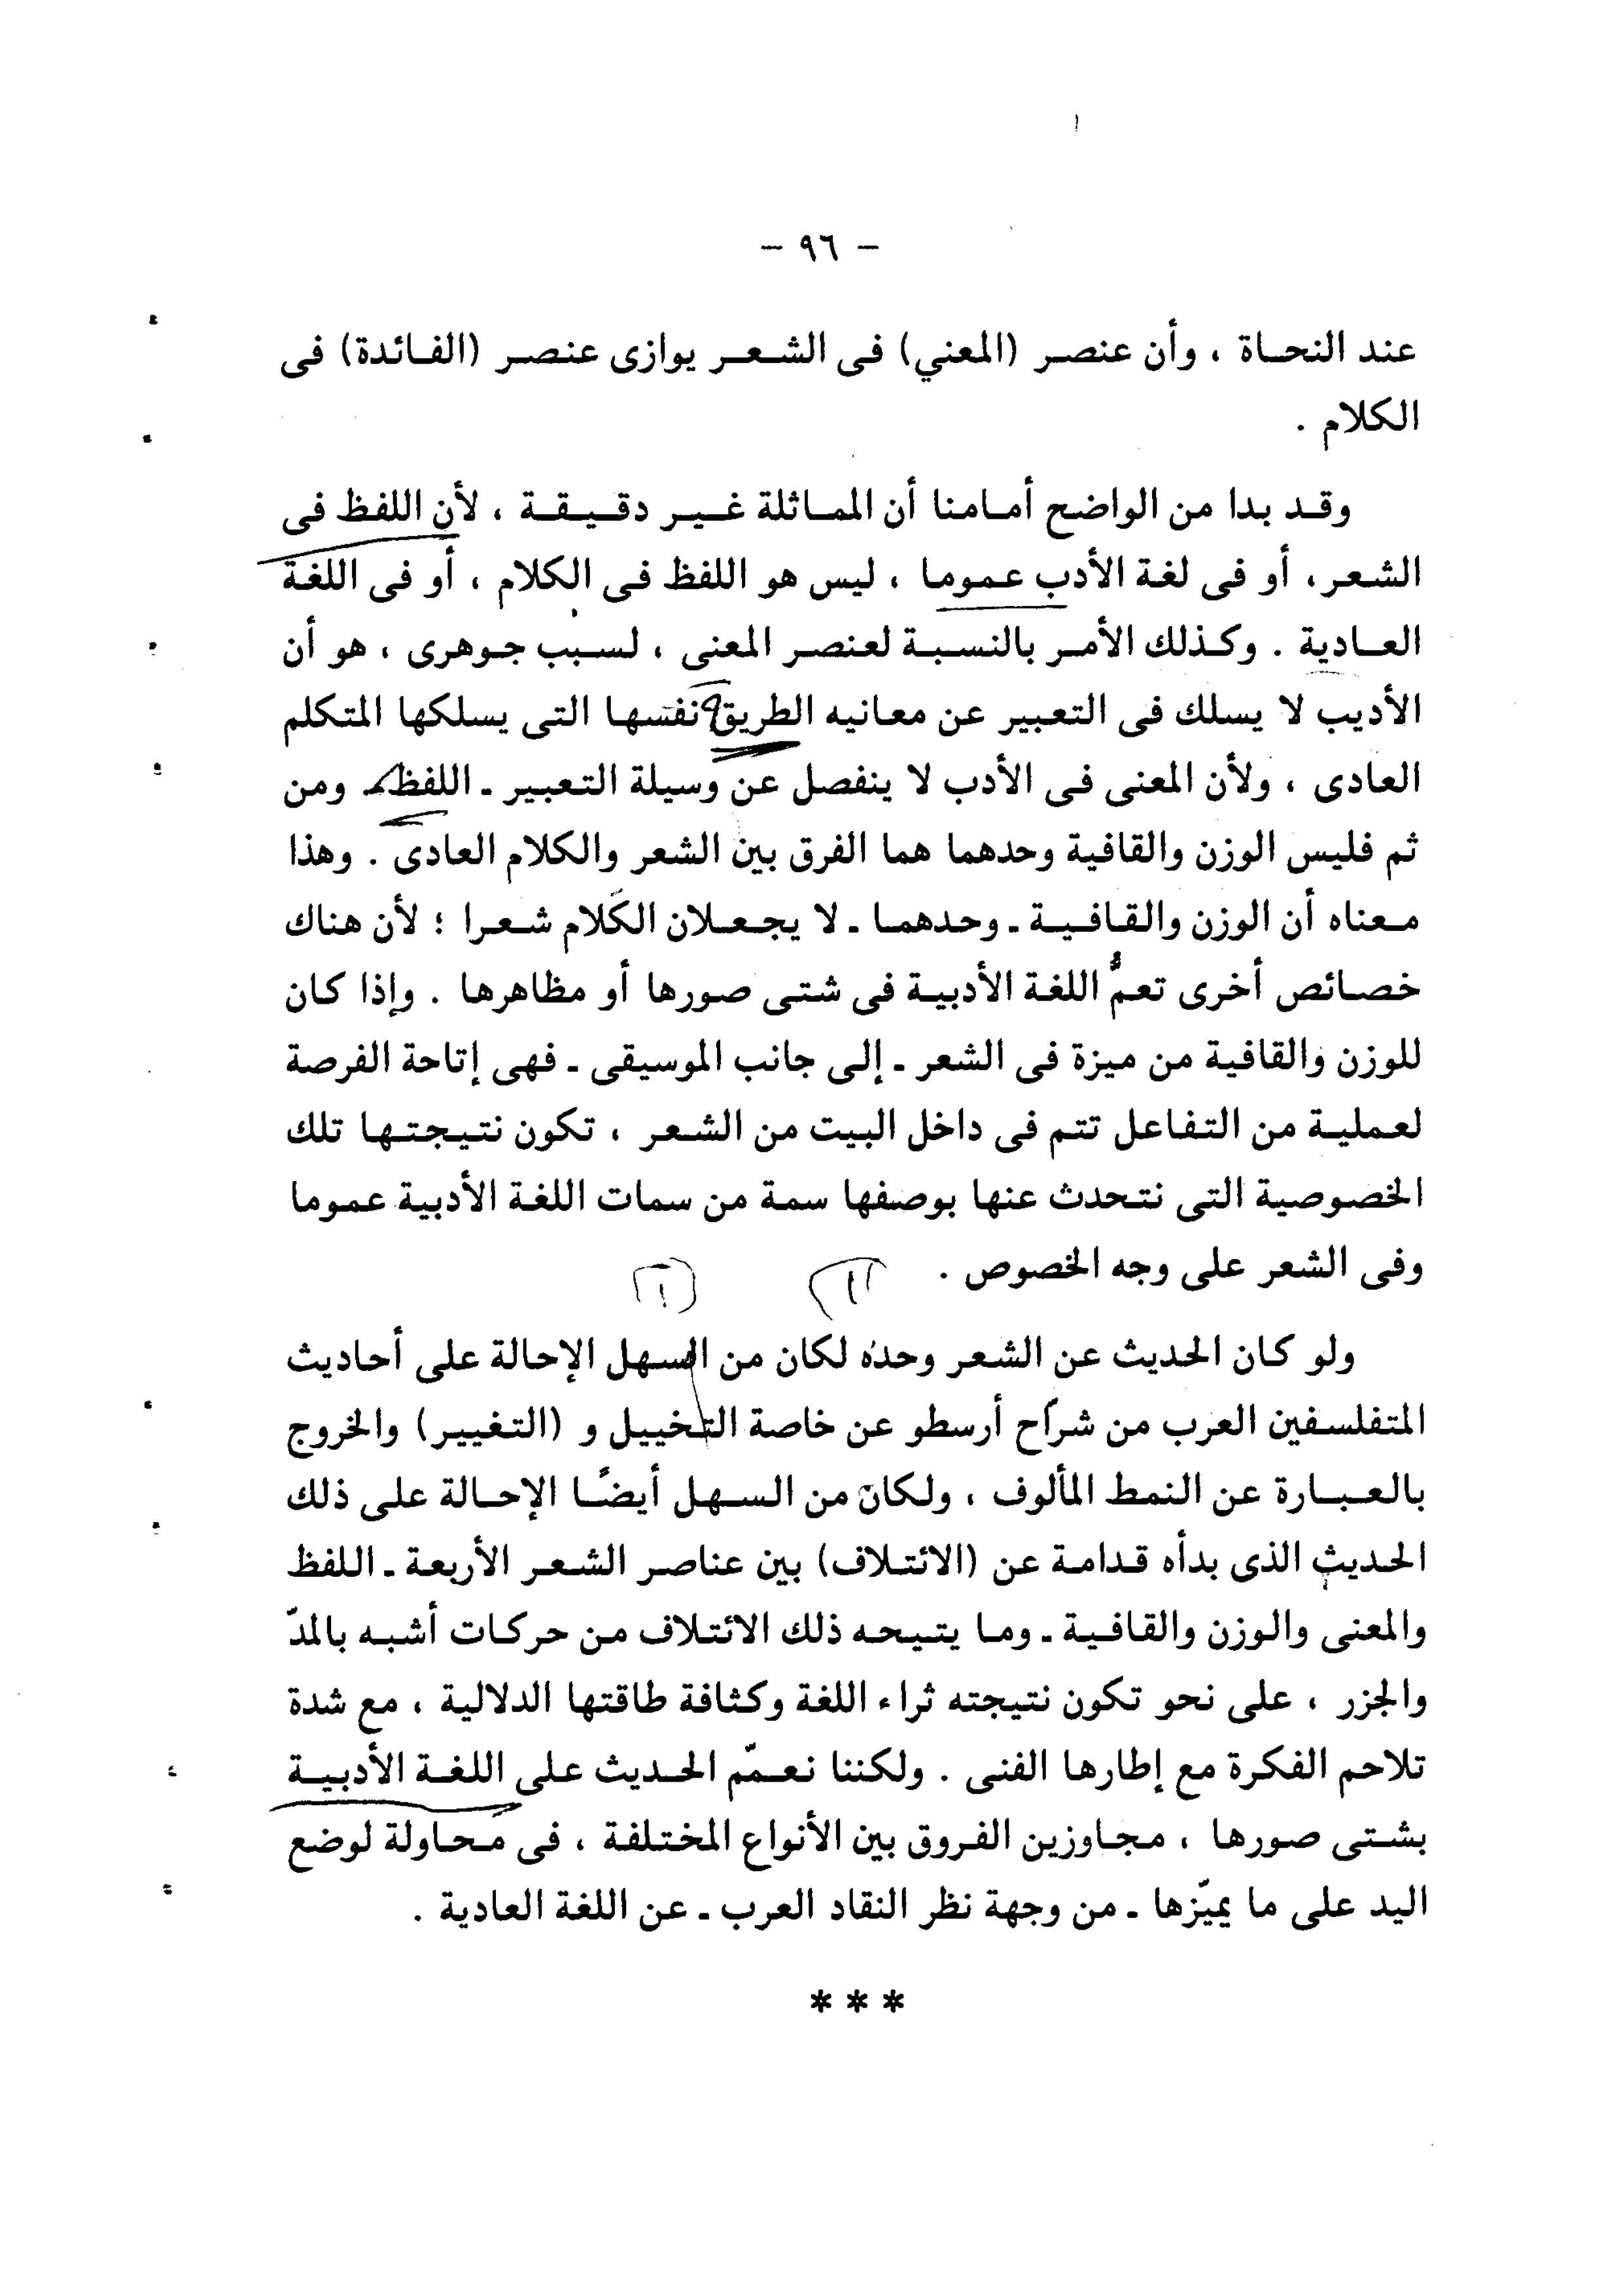 - ٩٦ -
عند النحاة ، وأن عنصر (المعني) فى الشعر يوازى عنصر (الفائدة) فى
الكلام .
وقد بدا من الواضح أمامنا أن المماثلة غير دقيقة ، لأن اللفظ فى
الشعر، أو فى لغة الأدب عموما ، ليس هو اللفظ فى الكلام ، أو فى اللغة
العادية . وكذلك الأمر بالنسبة لعنصر المعنى ، لسبب جوهرى ، هو أن
الأديب لا يسلك فى التعبير عن معانيه الطريق نفسها التى يسلكها المتكلم
العادى ، ولأن المعنى فى الأدب لا ينفصل عن وسيلة التعبير ـ اللفظ ـ ومن
ثم فليس الوزن والقافية وحدهما هما الفرق بين الشعر والكلام العادى . وهذا
معناه أن الوزن والقافية ـ وحدهما ـ لا يجعلان الكلام شعرا ؛ لأن هناك
خصائص أخرى تعمُّ اللغة الأدبية فى شتى صورها أو مظاهرها . وإذا كان
للوزن والقافية من ميزة فى الشعر ـ إلى جانب الموسيقى ـ فهى إتاحة الفرصة
لعملية من التفاعل تتم فى داخل البيت من الشعر ، تكون نتيجتها تلك
الخصوصية التى نتحدث عنها بوصفها سمة من سمات اللغة الأدبية عموما
وفى الشعر على وجه الخصوص .
ولو كان الحديث عن الشعر وحده لكان من السهل الإحالة على أحاديث
المتفلسفين العرب من شراح أرسطو عن خاصة التخييل و (التغيير) والخروج
بالعبارة عن النمط المألوف ، ولكان من السهل أيضًا الإحالة على ذلك
الحديث الذى بدأه قدامة عن (الائتلاف) بين عناصر الشعر الأربعة ـ اللفظ
والمعنى والوزن والقافية ـ وما يتيحه ذلك الائتلاف من حركات أشبه بالمدّ
والجزر ، على نحو تكون نتيجته ثراء اللغة وكثافة طاقتها الدلالية ، مع شدة
تلاحم الفكرة مع إطارها الفنى . ولكننا نعمّم الحديث على اللغة الأدبية
بشتى صورها ، مجاوزين الفروق بين الأنواع المختلفة ، فى محاولة لوضع
اليد على ما يميّزها ـ من وجهة نظر النقاد العرب ـ عن اللغة العادية .
* * *